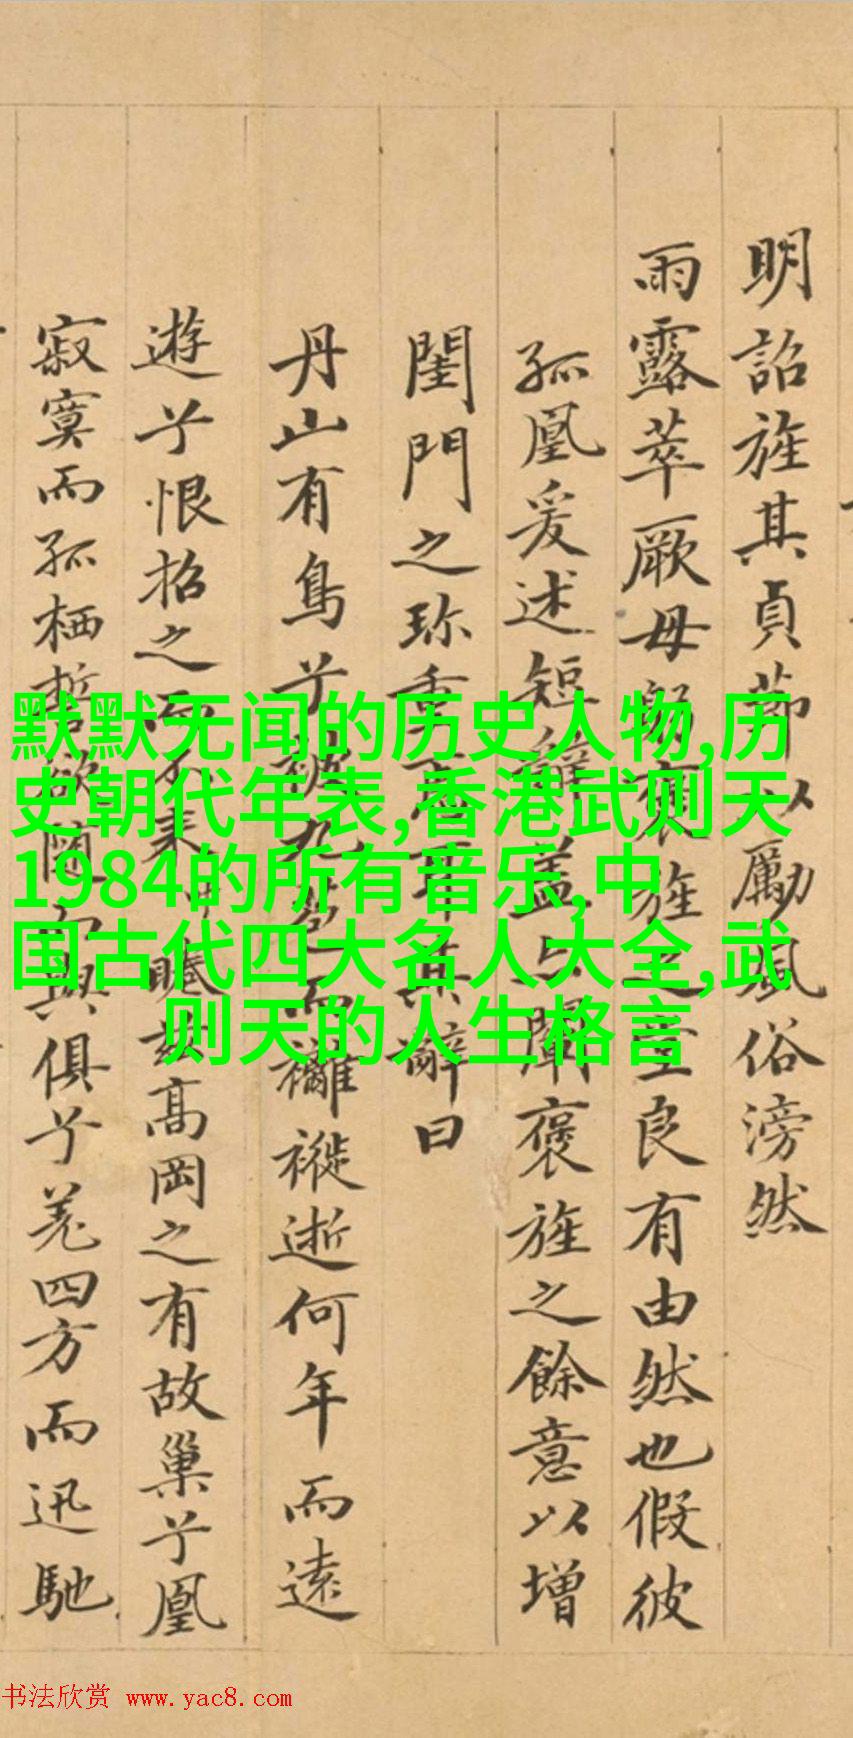 明詔旌其貞節以勵風俗滂然
雨露萃厥母躬褒旌之至良有由然也假彼
孤凰爰述短辭盖与闡褒旌之餘意以增
閨門之珎重云爾其辭曰
丹山有鳥兮被九苞而襹褷逝何年而遠
遊兮恨招之而不来睠兹高岡之有故巢兮凰
寂寞而孤栖哲欲随而與俱兮羌四方而迅馳
默默无闻的历史人物,历
史朝代年表,香港武则天
1984的所有音乐,中
国古代四大名人大全,武
则天的人生格言
书法欣赏 www.yac8.com